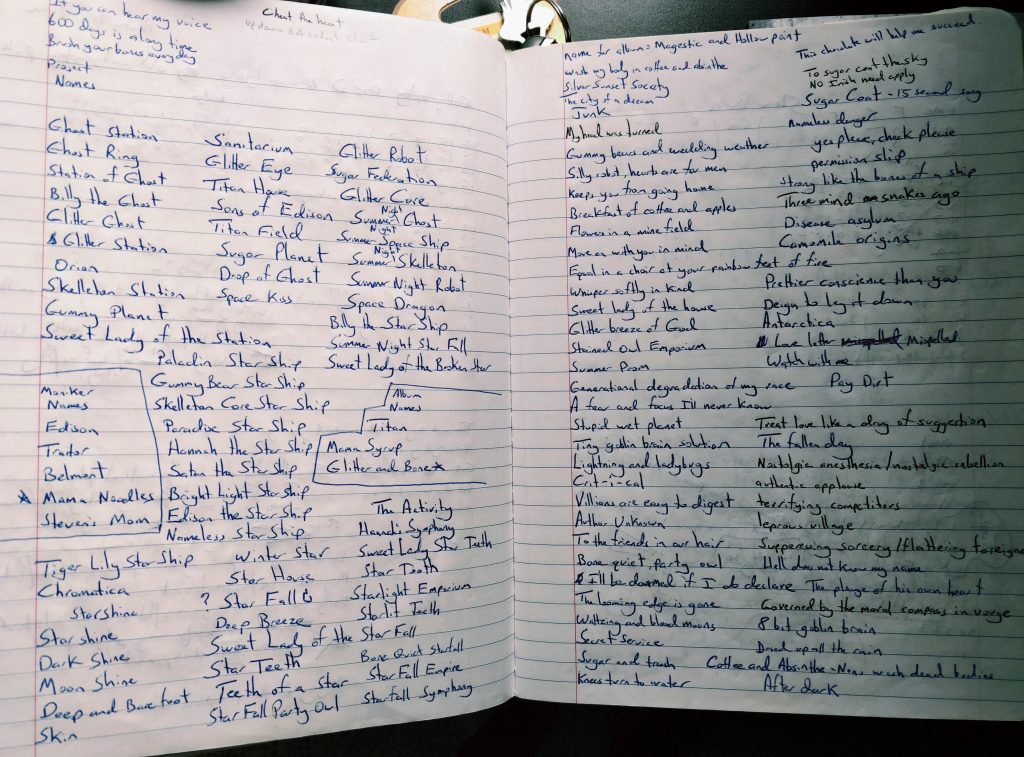 If you can hear my voice
600 days is a long time
Brush your bones everyday
Cheat the heart
up down BA select start
Project
Names
Ghost Station
Ghost Ring
Station of Ghost
Billy the Ghost
Glitter Ghost
Glitter Station
Orion
Skelleton Station
Gummy Planet
Sweet Lady of the Station
Sanitarium
Glitter Eye
Titan House
Sons of Edison
Titan Field
Sugar Planet
Drop of Ghost
Space Kiss
Glitter Robot
Sugar Federation
Glitter Core
Summer Night Ghost
Summer Night Space Ship
Summer Night Skelleton
Summer Night Robot
Space Dragon
Billy the Star Ship
Summer Night Star Fall
Sweet Lady of the Broken Star
Paladin Star Ship
Gummy Bear Star Ship
Skelleton Core Star Ship
Paradise Star Ship
Hannah the Star Ship
Satan the Star Ship
Bright Light Star Ship
Edison the Star Ship
Nameless Star Ship
Moniker
Names
Edison
Traitor
Belmont
Mama Noodles
Steven's Mom
Album
Names
Titan
Mama Syrup
Glitter and Bone
The Activity
Hannah's Symphony
Sweet Lady Star Teeth
Star Death
Starlight Emporium
Starlit Teeth
Tiger Lily Star Ship
Chromatica
Starshine
Star shine
Dark Shine
Moon Shine
Deep and Barefoot
Skin
Winter Star
Star House
? Star Fall
Deep Breeze
Sweet Lady of the Star Fall
Star Teeth
Teeth of a Star
Star Fall Party Owl
Bone Quiet Starfall
Star Fall Empire
Starfall Symphony
name for album: Magestic and Hollow point
wash my body in coffee and absinthe
Silver Sunset Society
The city of a dream
Junk
My head was turned
Gummy bears and wedding weather
Silly robot, hearts are for men
Keeps you from going home
Breakfast of coffee and apples
Flowers in a mine field
Move as with you in mind
Equal in a chair at your rainbow feet of fire
Whisper softly in kind
Sweet lady of the house
Glitter breeze of God
Stained Owl Emporium
Summer Prom
Generational degradation of my race
A fear and focus I'll never know
Stupid wet planet
Tiny goblin brain solution
Lightning and ladybugs
Crit-i-cal
Villians are easy to digest
Author Unknown
To the friends in our hair
Bone quiet, party owl
I'll be damned if I do declare
The looming edge is gone
Waltzing and blood moons
Secret Service
Sugar and trash
Knees turn to water
This chocolate will help me succeed.
To sugar coat the sky
No Irish need apply
Sugar Coat - 15 second song
nameless danger
yes please, check please
permission slip
Strong like the bones of a ship
Three mind snakes ago
Disease asylum
Camomile origins
Prettier conscience than you
Deign to leg it down
Antarctica
Love letter Mispelled
Watch with me
Pay Dirt
Treat love like a drug of suggestion
The fallen day
Nostalgic anesthesia / nostalgic rebellion
authentic applause
terrifying competitors
leprous village
Suppressing sorcery / flattering foreigne
Hell does not know my name
The plauge of his own heart
Governed by the moral compass in
8 bit goblin brain
Dried up all the rain
Coffee and Absinthe - Nuns wash dead bodies
After dark